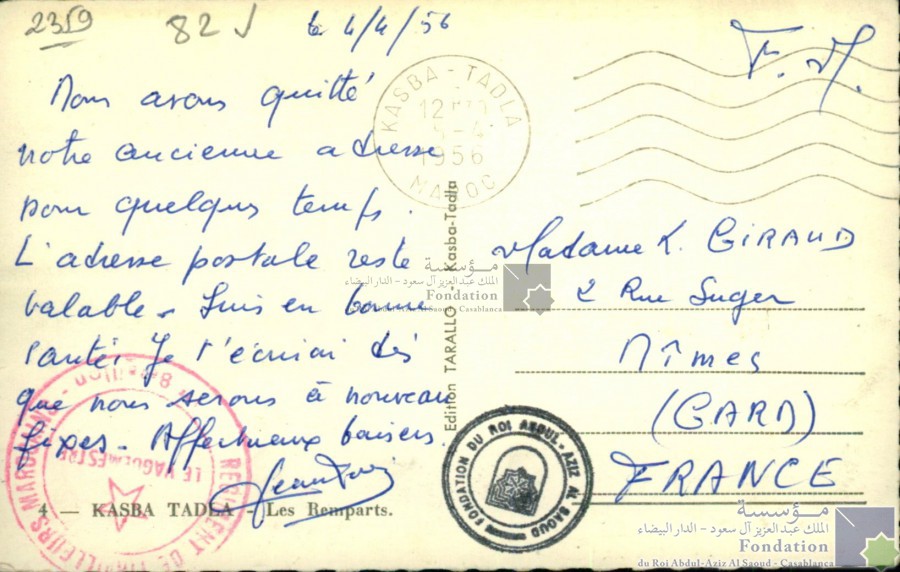 2359 82
le 4/4/56
F. M.
Nous avons quitté
notre ancienne adresse
pour quelques temps.
L'adresse postale reste
valable. Suis en bonne
santé. Je t'écrirai dès
que nous serons à nouveau
fixés. Affectueux baisers.
4 — KASBA TADLA - Les Remparts.
KASBA-TADLA
1956
MAROC
Edition TARALLO - Kasba-Tadla
Madame K. GIRAUD
2 Rue Suger
Nîmes
(GARD)
FRANCE
REGIMENT DE TIRAILLEURS MAROCAINS
Bataillon
LE VAGUEMESTRE
FONDATION DU ROI ABDUL-AZIZ AL SAOUD
مؤسسة
الملك عبد العزيز آل سعود - الدار البيضاء
Fondation
du Roi Abdul-Aziz Al Saoud - Casablanca
مؤسسة
الملك عبد العزيز آل سعود - الدار البيضاء
Fondation
du Roi Abdul-Aziz Al Saoud - Casablanca